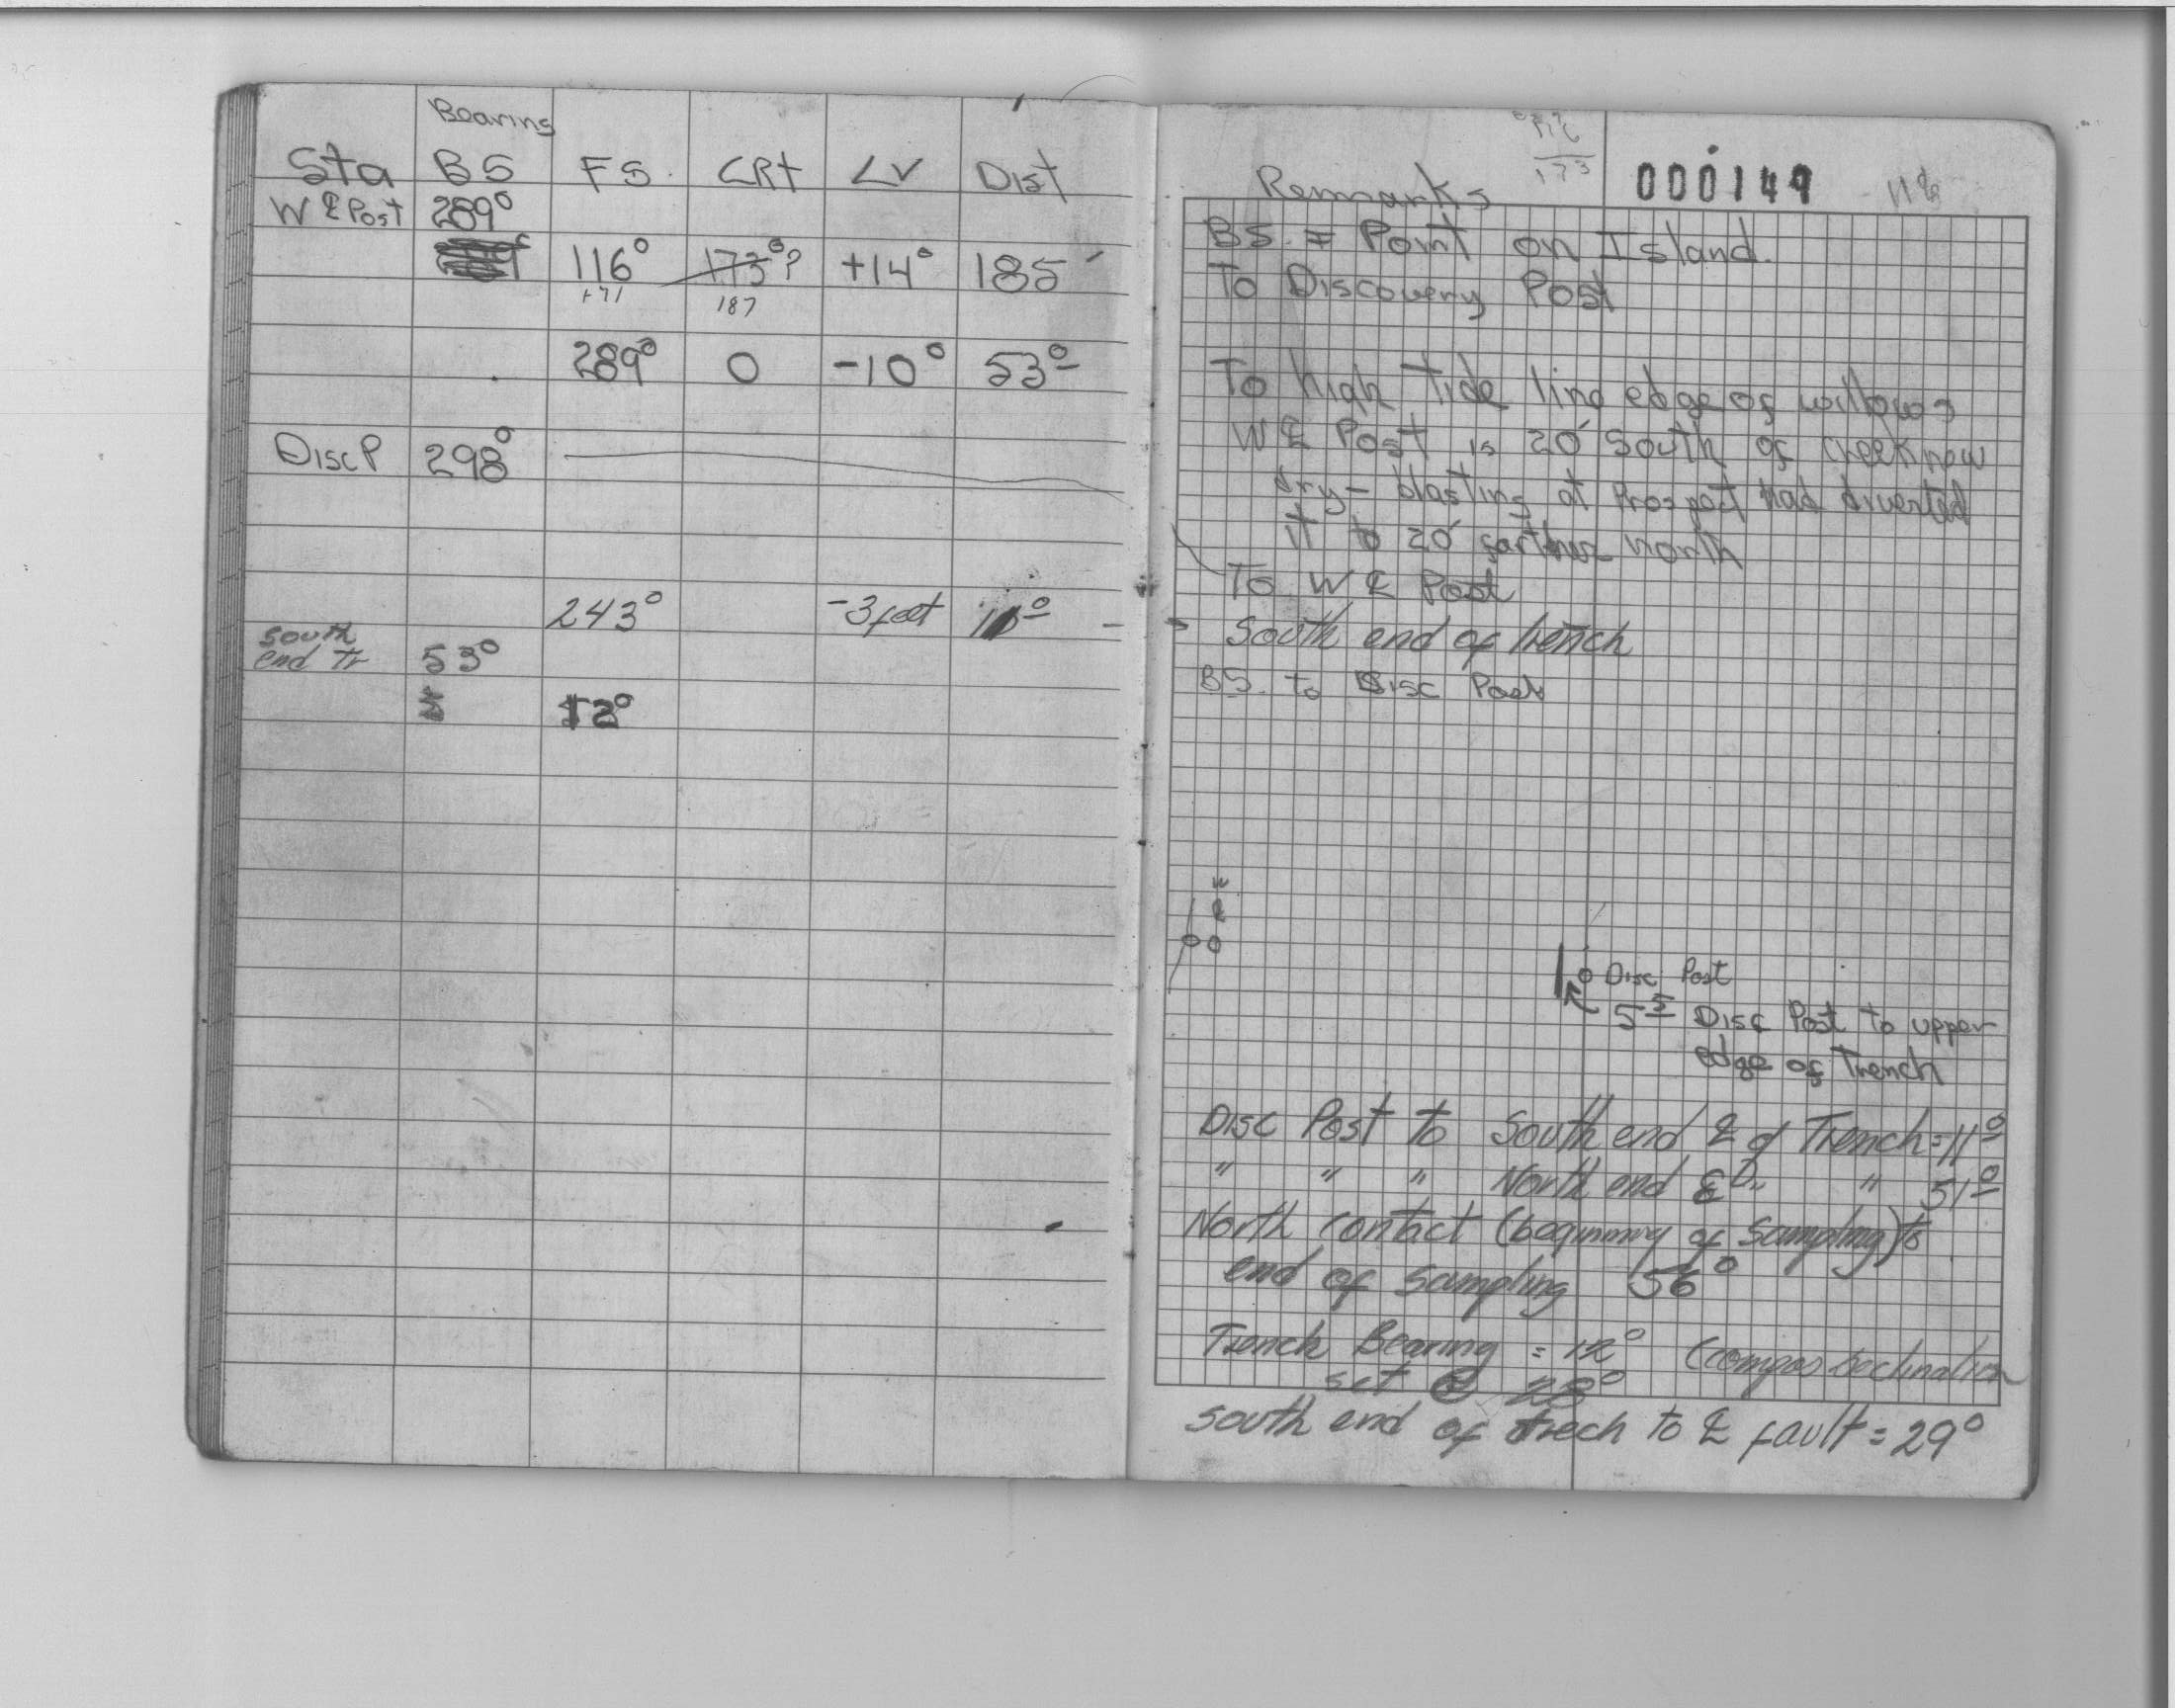 Bearing
Sta BS FS. ∠Rt ∠V Dist
W ℄ Post 289°
116° 173°? +14° 185'
+71 187
289° 0 -10° 53º
Disc P 298°
243° -3 feet
south
end Tr 53°
12°
173
000149
Remarks
BS. = Point on Island.
To Discovery Post
To high tide line edge of willows
W ℄ Post is 20' South of creek now
dry - blasting at Prospect had diverted
it to 20' farther north
To W ℄ Post
South end of trench
BS. to Disc Post
W
℄
Disc Post
5⁵ Disc Post to upper
edge of Trench
Disc Post to South end ℄ of Trench = 11º
" " " North end ℄ " " 51º
North contact (beginning of sampling) to
end of sampling 56°
Trench Bearing = 12° (compas declination
set @ 28°
south end of trech to ℄ fault = 29°